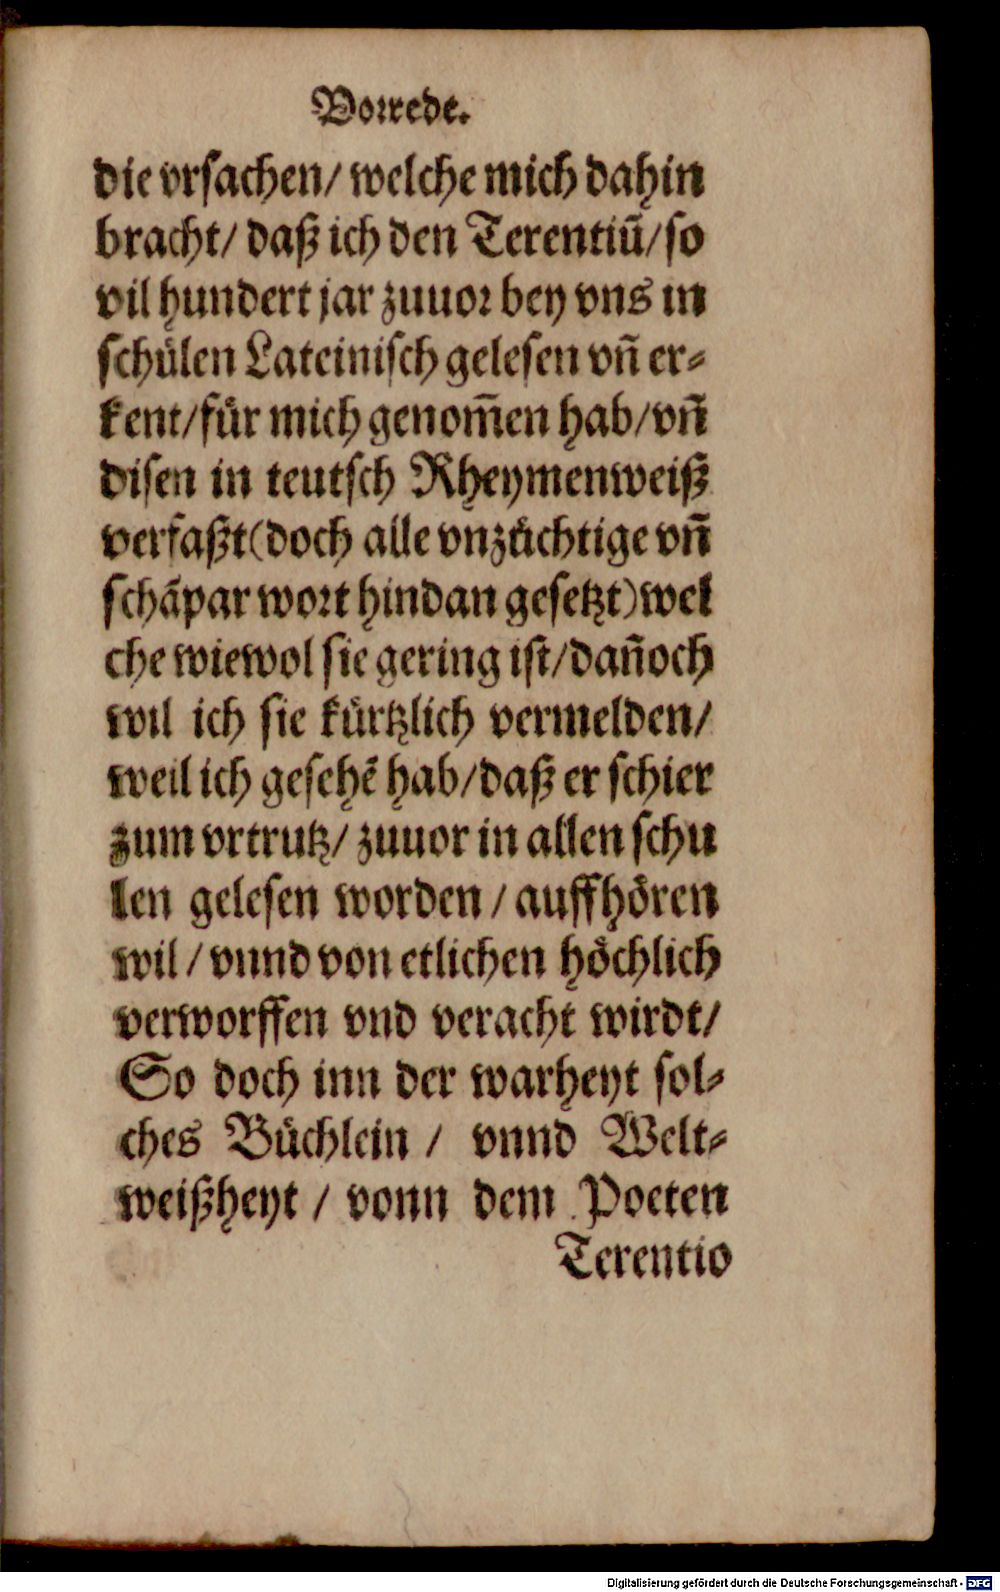 Vorrede.
die vrsachen/ welche mich dahin
bracht/ daß ich den Terentiũ/ so
vil hundert jar zuuor bey vns in
schůlen Lateinisch gelesen vñ er-
kent/ für mich genom̃en hab/ vñ
disen in teutsch Rheymenweiß
verfaßt (doch alle vnzüchtige vñ
schãpar wort hindan gesetzt) wel
che wiewol sie gering ist/ dañoch
wil ich sie kürtzlich vermelden/
weil ich gesehẽ hab/ daß er schier
zum vrtrutz/ zuuor in allen schu
len gelesen worden / auffhören
wil / vnnd von etlichen höchlich
verworffen vnd veracht wirdt/
So doch inn der warheyt sol-
ches Büchlein / vnnd Welt-
weißheyt / vonn dem Poeten
Terentio
Digitalisierung gefördert durch die Deutsche Forschungsgemeinschaft - DFG